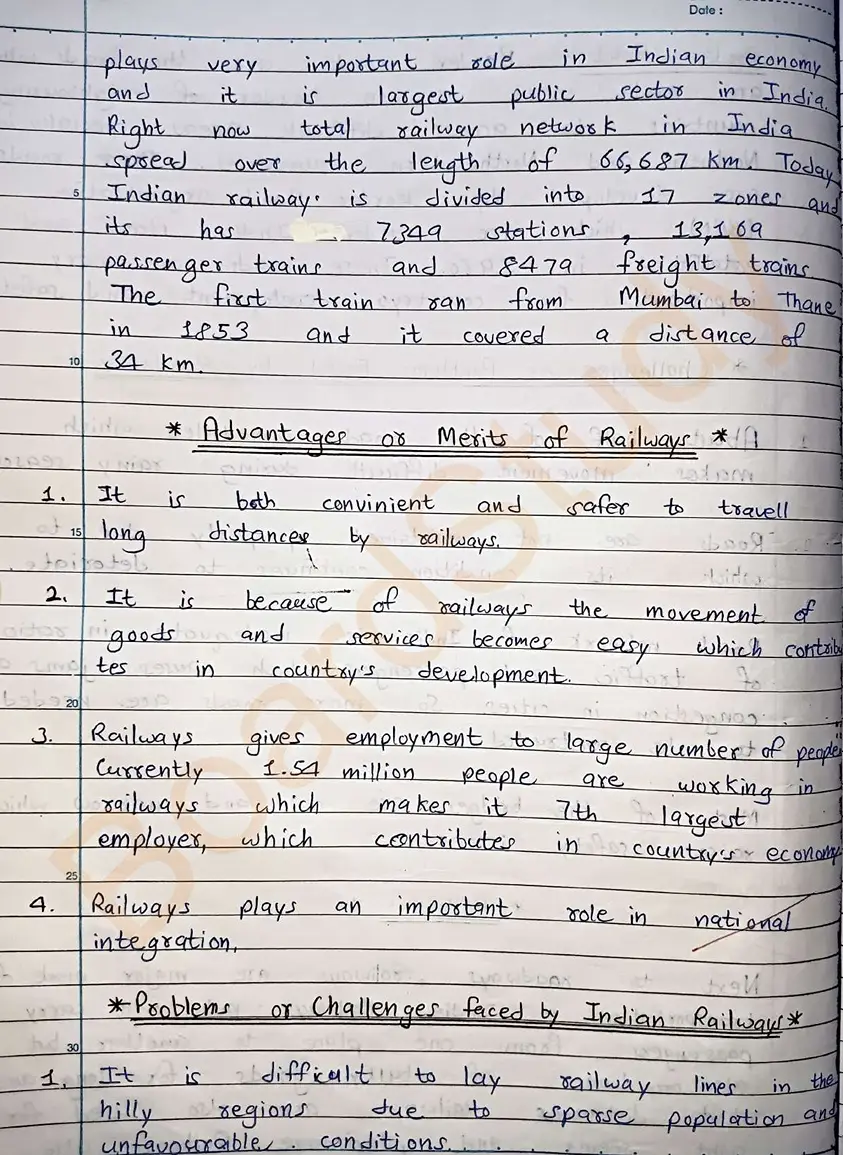 Date :
plays very important role in Indian economy
and it is largest public sector in India.
Right now total railway network in India
spread over the length of 66,687 km. Today
5 Indian railway is divided into 17 zones and
its has 7,349 stations, 13,169
passenger trains and 8479 freight trains.
The first train ran from Mumbai to Thane
in 1853 and it covered a distance of
10 34 km.
* Advantages or Merits of Railways *
1. It is both convinient and safer to travell
15 long distances by railways.
2. It is because of railways the movement of
goods and services becomes easy which contribu
tes in country's development.
20
3. Railways gives employment to large number of people
Currently 1.54 million people are working in
railways which makes it 7th largest
employer, which contributes in country's economy
25
4. Railways plays an important role in national
integration.
* Problems or Challenges faced by Indian Railways *
30
1. It is difficult to lay railway lines in the
hilly regions due to sparse population and
unfavourable conditions.
BoardStudy